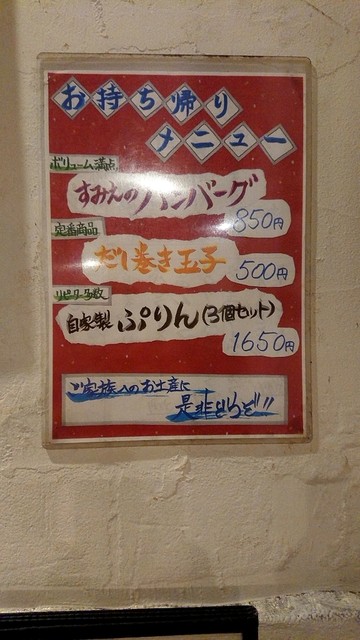 お持ち帰り
メニュー
ボリューム満点
すみれのハンバーグ
850円
定番商品
だし巻き玉子
500円
リピーター多数
自家製 ぷりん(3個セット)
1650円
ご家族へのお土産に
是非どうぞ!!